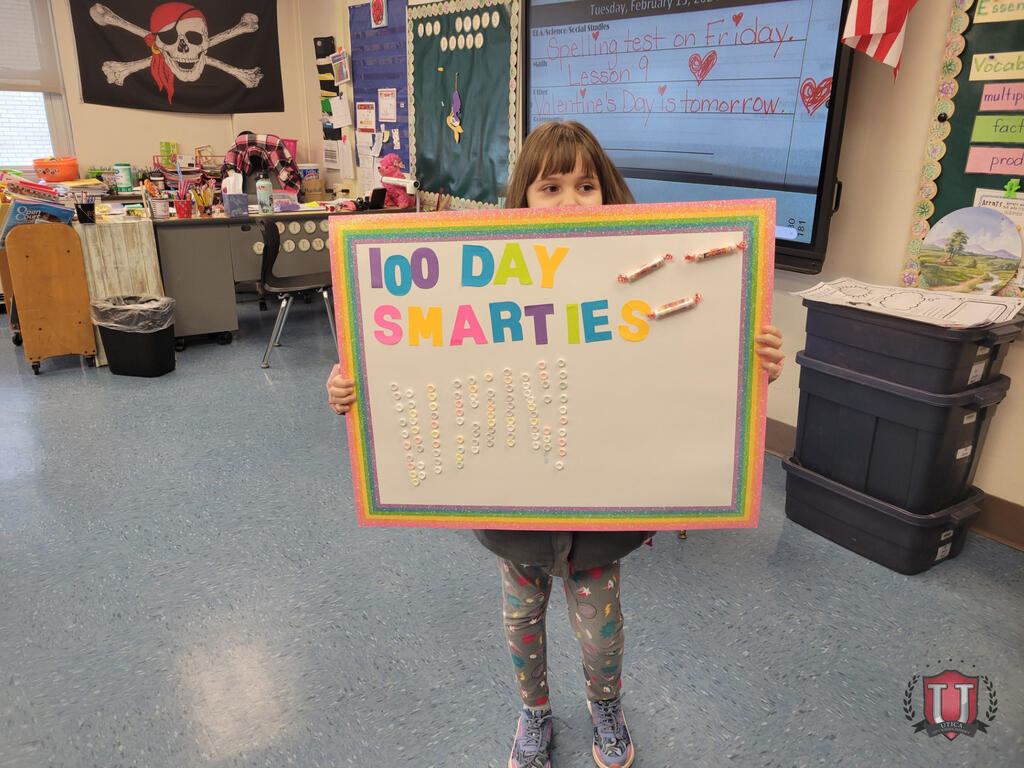 Tuesday, February 13, 202
ELA/Science/Social Studies
Spelling test on Friday.
Math
Lesson 9
Other
Valentine's Day is tomorrow.
100 DAY
SMARTIES
Essen
Vocab
multip
fact
prod
Arrays
UTICA